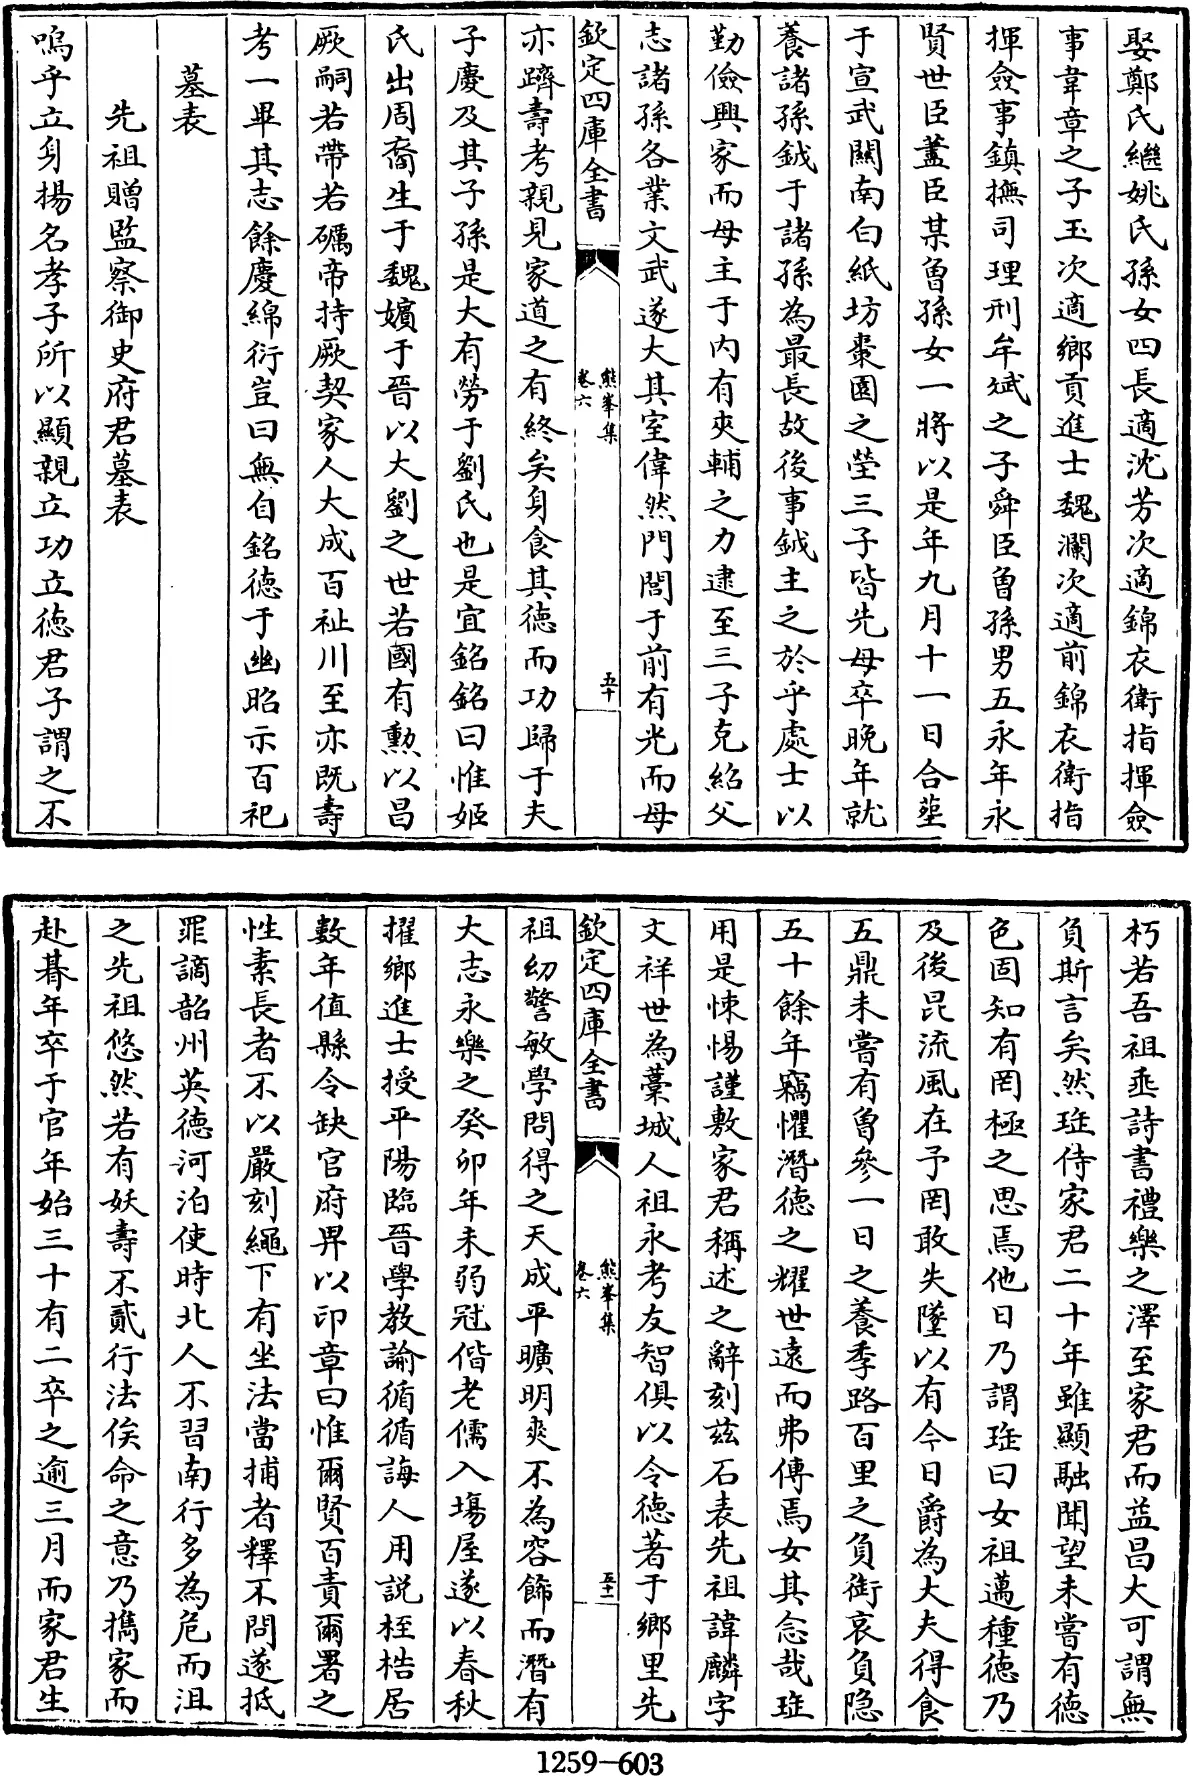 娶鄭氏繼姚氏孫女四長適沈芳次適錦衣衛指揮僉
事韋章之子玉次適鄉貢進士魏瀾次適前錦衣衛指
揮僉事鎮撫司理刑牟斌之子舜臣曾孫男五永年永
賢世臣藎臣某曾孫女一將以是年九月十一日合塟
于宣武關南白紙坊棗園之塋三子皆先母卒晚年就
養諸孫鉞于諸孫為最長故後事鉞主之於乎處士以
勤儉興家而母主于內有夾輔之力逮至三子克紹父
志諸孫各業文武遂大其室偉然門閭于前有光而母
欽定四庫全書
熊峯集
卷六
五十
亦躋壽考親見家道之有終矣身食其德而功歸于夫
子慶及其子孫是大有勞于劉氏也是宜銘銘曰惟姬
氏出周裔生于魏嬪于晉以大劉之世若國有勲以昌
厥嗣若帶若礪帝持厥契家人大成百祉川至亦既壽
考一畢其志餘慶綿衍豈曰無自銘德于幽昭示百祀
墓表
先祖贈監察御史府君墓表
嗚乎立身揚名孝子所以顯親立功立德君子謂之不
朽若吾祖乖詩書禮樂之澤至家君而益昌大可謂無
負斯言矣然珤侍家君二十年雖顯融聞望未嘗有德
色固知有罔極之思焉他日乃謂珤曰女祖邁種德乃
及後昆流風在予罔敢失墜以有今日爵為大夫得食
五鼎未嘗有曾參一日之養季路百里之負銜哀負隱
五十餘年竊懼潛德之耀世遠而弗傳焉女其念哉珤
用是悚惕謹敷家君稱述之辭刻茲石表先祖諱麟字
文祥世為藁城人祖永考友智俱以令德著于鄉里先
欽定四庫全書
熊峯集
卷六
五十一
祖幼警敏學問得之天成平曠明爽不為容飾而潛有
大志永樂之癸卯年未弱冠偕老儒入塲屋遂以春秋
擢鄉進士授平陽臨晉學教諭循循誨人用説桎梏居
數年值縣令缺官府畀以印章曰惟爾賢百責爾署之
性素長者不以嚴刻繩下有坐法當捕者釋不問遂抵
罪謫韶州英德河泊使時北人不習南行多為危而沮
之先祖悠然若有妖壽不貳行法俟命之意乃攜家而
赴朞年卒于官年始三十有二卒之逾三月而家君生
1259-603